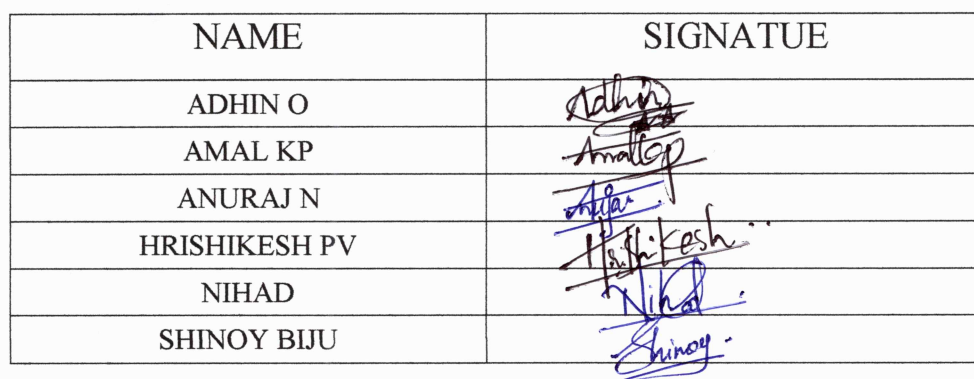 NAME SIGNATUE
ADHIN O Adhin
AMAL KP Amalkp
ANURAJ N
HRISHIKESH PV Hrishikesh
NIHAD Nihad
SHINOY BIJU Shinoy